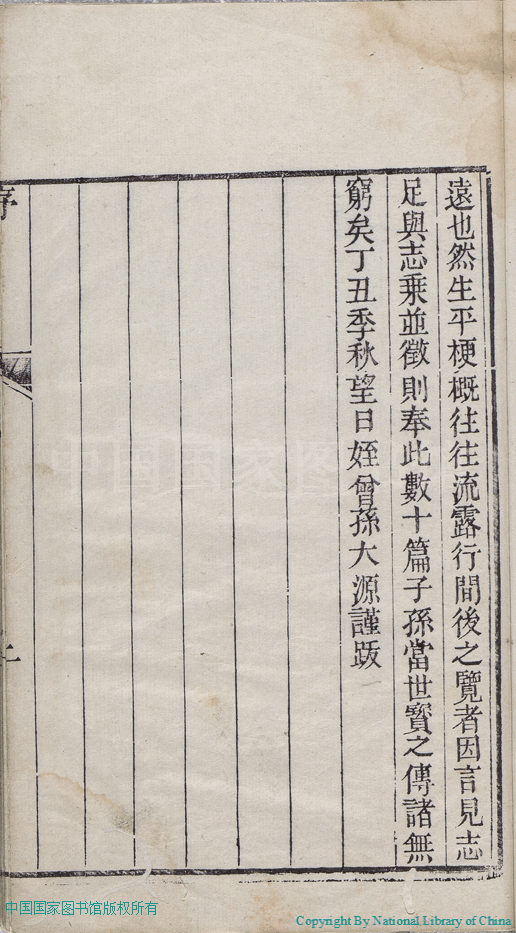 遠也然生平梗概往往流露行間後之覽者因言見志
足與志乘並徵則奉此數十篇子孫當世寶之傳諸無
窮矣丁丑季秋望日姪曾孫大源謹跋
序
二
中国国家图
中国国家图书馆版权所有
Copyright By National Library of China